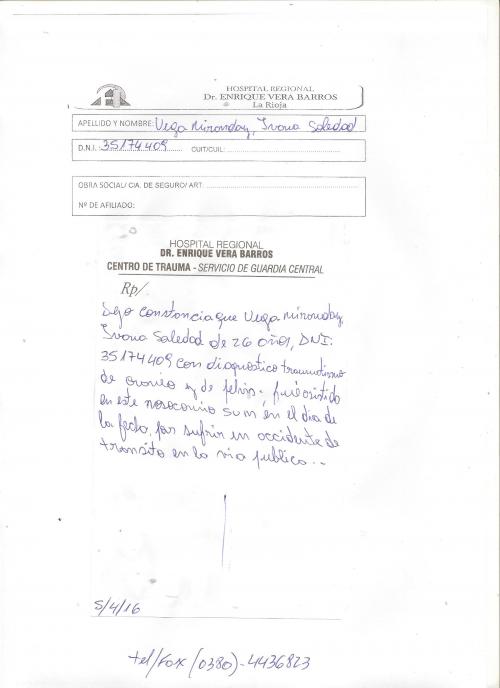 HOSPITAL REGIONAL
Dr. ENRIQUE VERA BARROS
La Rioja
APELLIDO Y NOMBRE: Vega Mironday, Ivona Soledad
D.N.I.: 35174409 CUIT/CUIL:
OBRA SOCIAL/ CIA. DE SEGURO/ ART
Nº DE AFILIADO:
HOSPITAL REGIONAL
DR. ENRIQUE VERA BARROS
CENTRO DE TRAUMA - SERVICIO DE GUARDIA CENTRAL
Rp/
Dejo constancia que Vega Mironday,
Ivona Soledad de 26 años, DNI:
35174409 con diagnostico traumatismo
de craneo y de pelvis. fué asistido
en este nosocomio en el dia de
la fecha, por sufrir un accidente de
transito en la via publica..
5/4/16
tel/fox (0380)-4436823